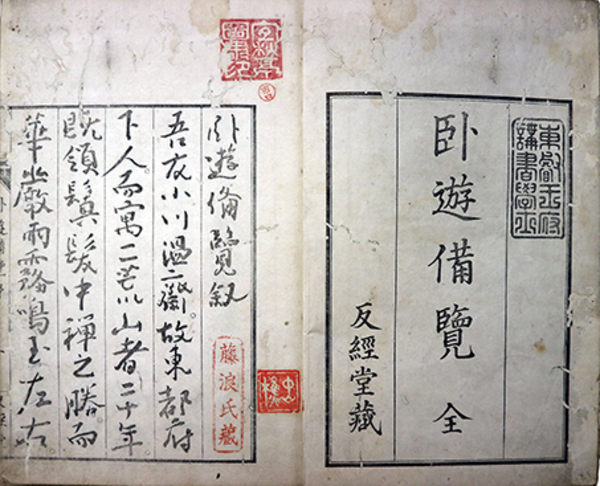 東叡王府
講書學士
卧遊備覽 全
反經堂藏
卧遊備覽叙
吾友小川温齋。故東都府
下人。而寓二荒山者二十年。
既領髮中禪之勝。而
華嚴雨霧鳴玉左右
藤浪氏藏